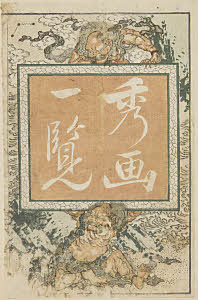 秀画
一覧